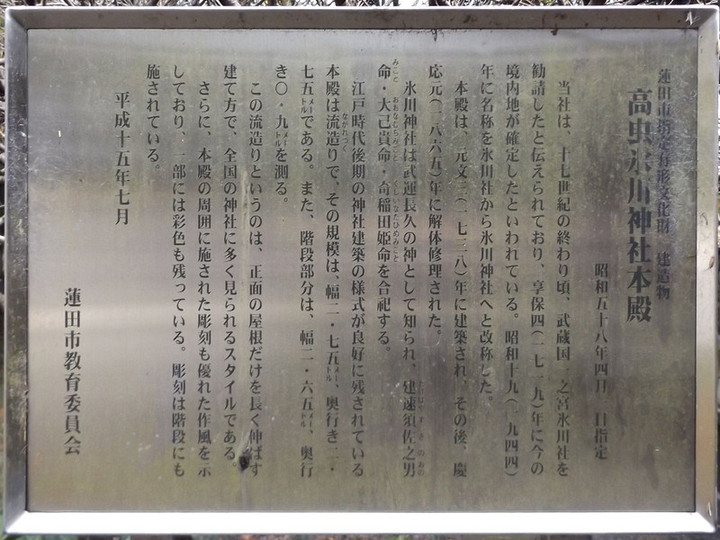 蓮田市指定有形文化財 建造物
高虫氷川神社本殿
昭和五十八年四月一日指定
当社は、十七世紀の終わり頃、武蔵国一之宮氷川社を
勧請したと伝えられており、享保四(一七一九)年に今の
境内地が確定したといわれている。昭和十九(一九四四)
年に名称を氷川社から氷川神社へと改称した。
本殿は、元文三(一七三八)年に建築され、その後、慶
応元(一八六五)年に解体修理された。
氷川神社は武運長久の神として知られ、建速須佐之男
命・大己貴命・奇稲田姫命を合祀する。
江戸時代後期の神社建築の様式が良好に残されている
本殿は流造りで、その規模は、幅二・七五メートル、奥行き二・
七五メートルである。また、階段部分は、幅二・六五メートル、奥行
き〇・九メートルを測る。
この流造りというのは、正面の屋根だけを長く伸ばす
建て方で、全国の神社に多く見られるスタイルである
さらに、本殿の周囲に施された彫刻も優れた作風を示
しており、一部には彩色も残っている。彫刻は階段にも
施されている。
平成十五年七月
蓮田市教育委員会